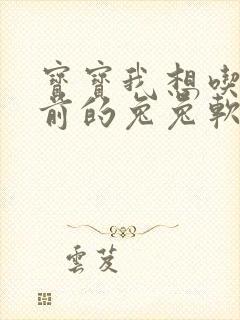 寶寶我想喫
前的兔兔軟
雲芨